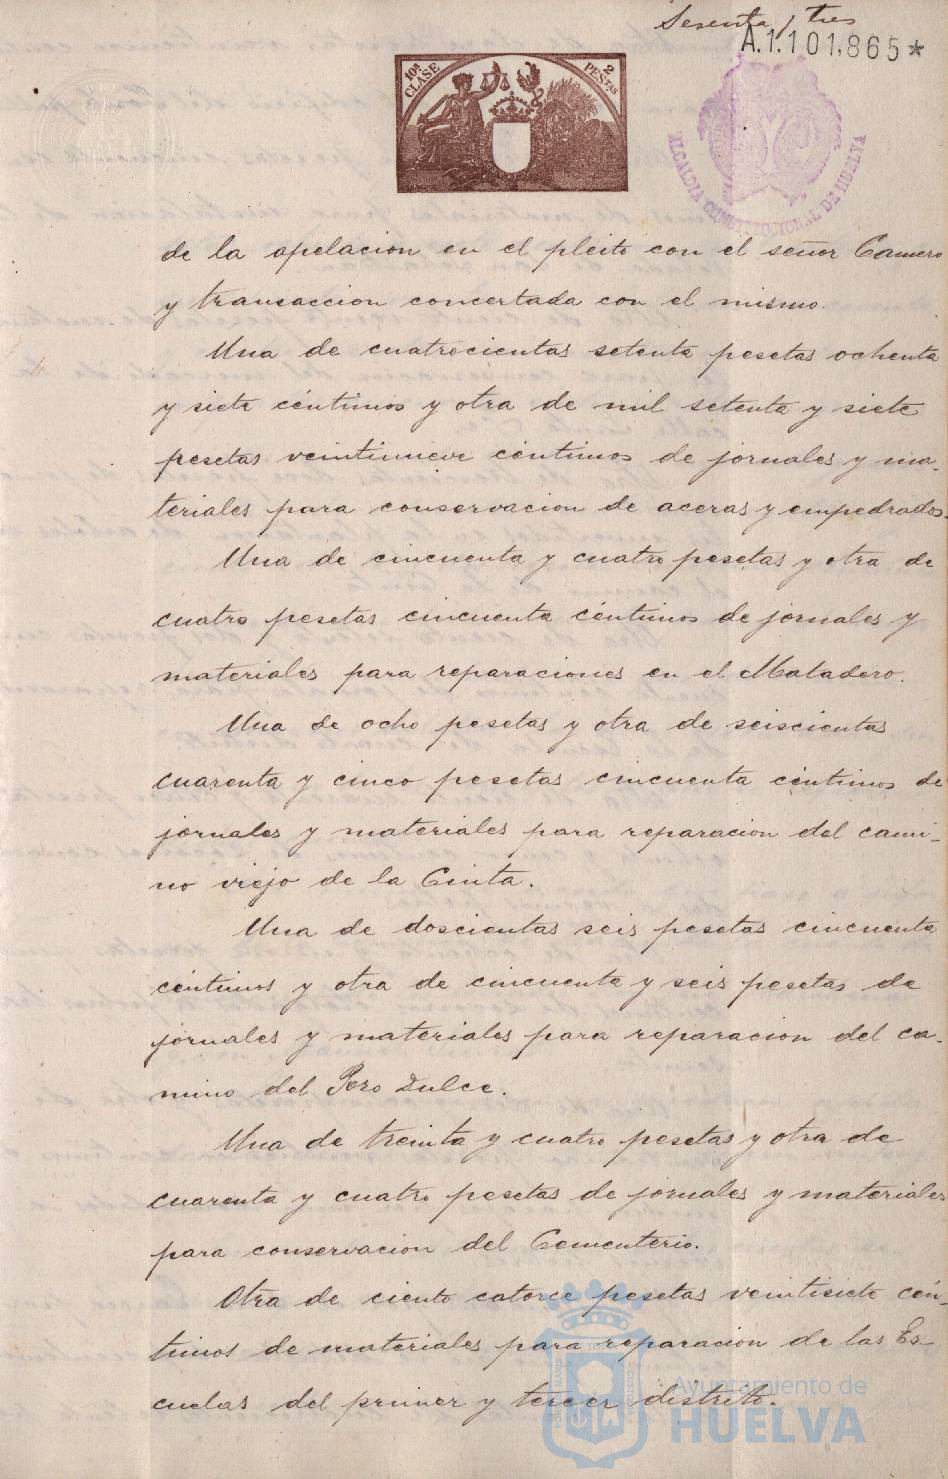 Sesenta y tres
A.1.101.865*
10ª CLASE
2 PESTAS
ALCALDIA CONSTITUCIONAL DE HUELVA
de la apelacion en el pleito con el señor Camero
y transaccion concertada con el mismo.
Una de cuatrocientas setenta pesetas ochenta
y siete céntimos y otra de mil setenta y siete
pesetas veintinueve céntimos de jornales y ma-
teriales para conservacion de aceras y empedrados.
Una de cincuenta y cuatro pesetas y otra de
cuatro pesetas cincuenta céntimos de jornales y
materiales para reparaciones en el Matadero.
Una de ocho pesetas y otra de seiscientas
cuarenta y cinco pesetas cincuenta céntimos de
jornales y materiales para reparacion del cami-
no viejo de la Cinta.
Una de doscientas seis pesetas cincuenta
céntimos y otra de cincuenta y seis pesetas de
jornales y materiales para reparacion del ca-
mino del Pozo Dulce.
Una de treinta y cuatro pesetas y otra de
cuarenta y cuatro pesetas de jornales y materiales
para conservacion del Cementerio.
Otra de ciento catorce pesetas veintisiete cén-
timos de materiales para reparacion de las Es-
cuelas del primer y tercer distrito.
Ayuntamiento de
HUELVA